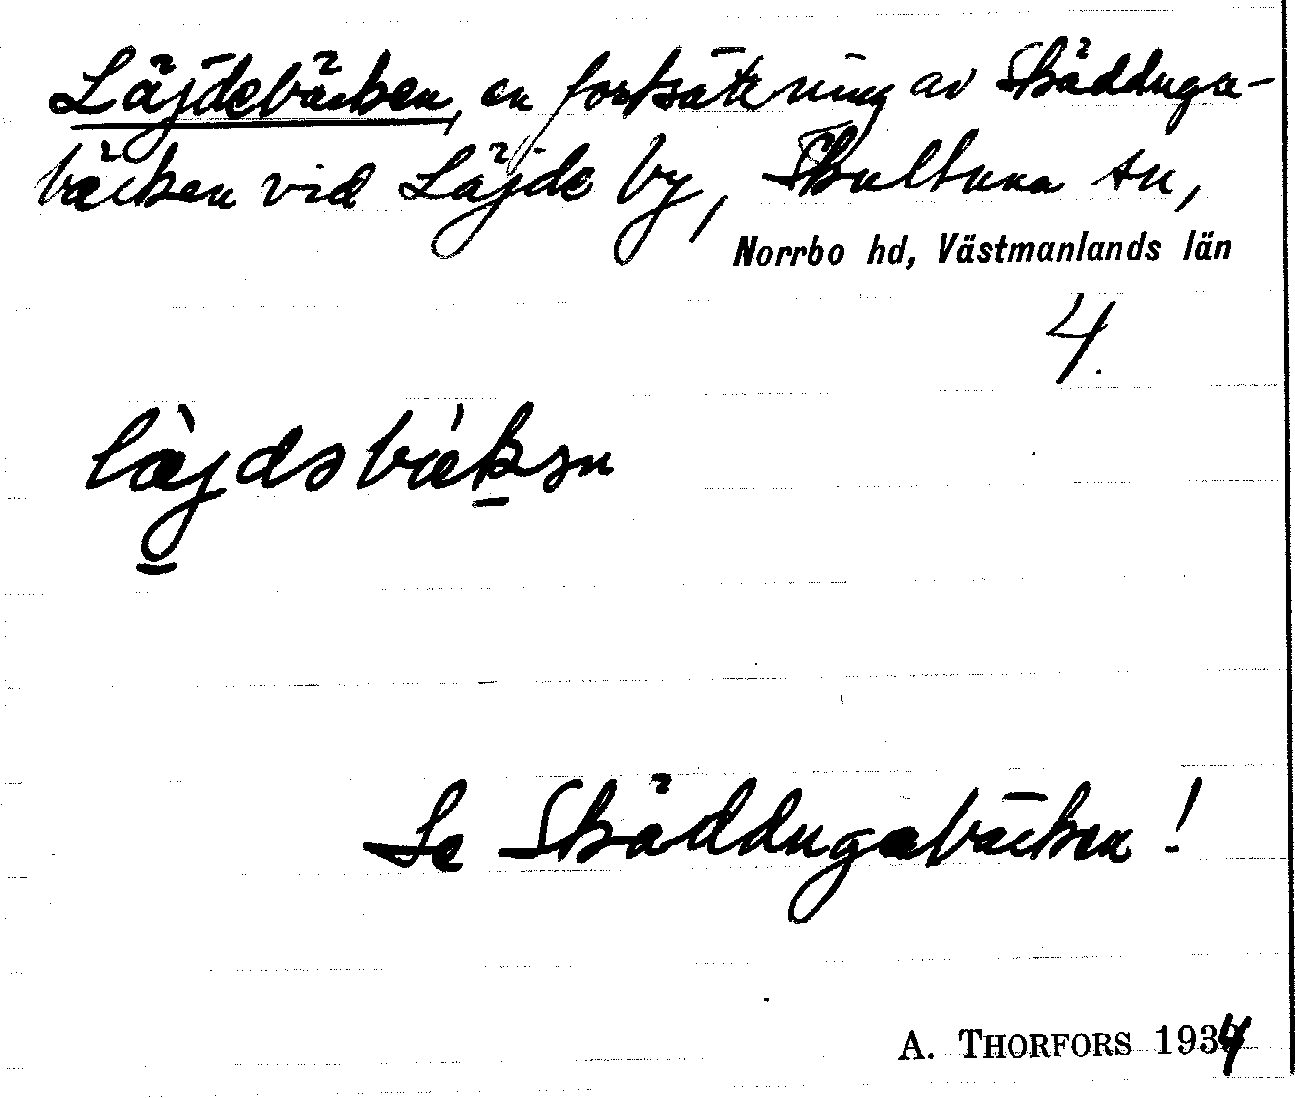 Läjdebäcken, en fortsättning av Skädduga-
bäcken vid Läjde by, Skultuna sn,
Norrbo hd, Västmanlands län
4.
læ̀jdəbæ̀kən
Se Skäddugabäcken!
A. THORFORS 1934